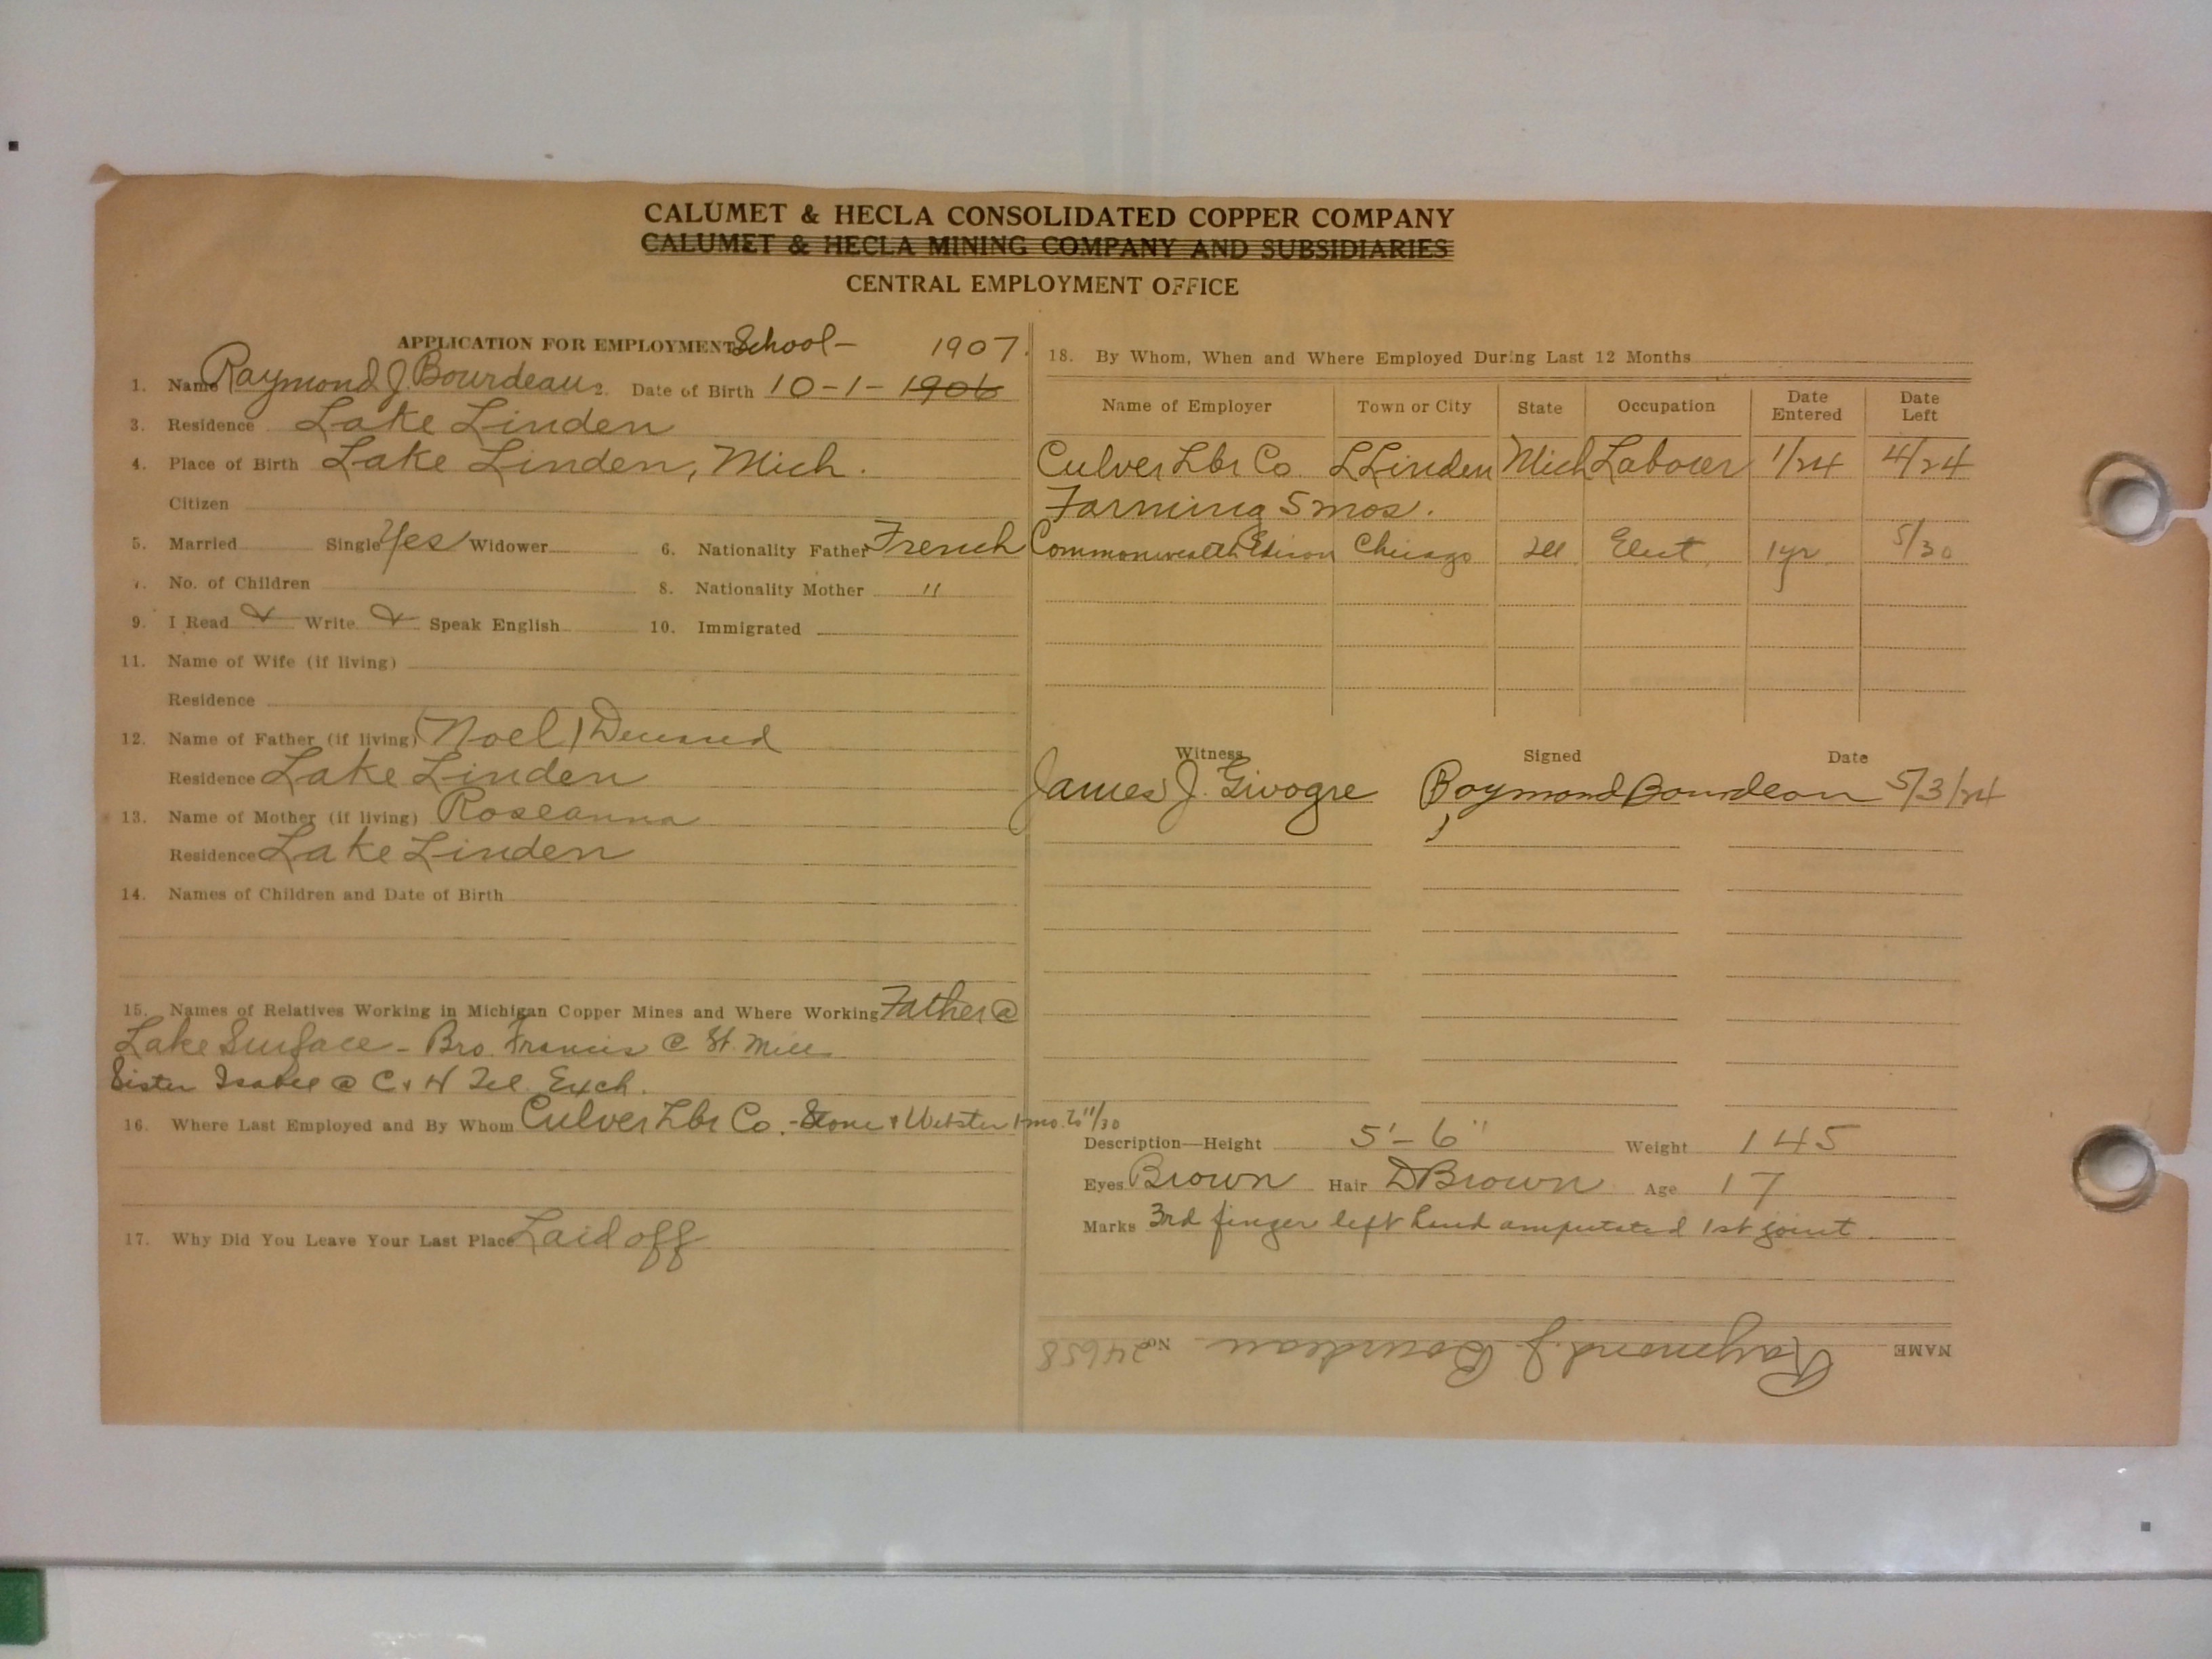 CALUMET & HECLA CONSOLIDATED COPPER COMPANY
CALUMET & HECLA MINING COMPANY AND SUBSIDIARIES
CENTRAL EMPLOYMENT OFFICE
APPLICATION FOR EMPLOYMENT School - 1907.
1. Name Raymond J. Bourdeau 2. Date of Birth 10-1-1906
3. Residence Lake Linden
4. Place of Birth Lake Linden, Mich.
Citizen
5. Married Single Yes Widower 6. Nationality Father French
7. No. of Children 8. Nationality Mother "
9. I Read Write Speak English 10. Immigrated
11. Name of Wife (if living)
Residence
12. Name of Father (if living) (Noel) Deceased
Residence Lake Linden
13. Name of Mother (if living) Roseanna
Residence Lake Linden
14. Names of Children and Date of Birth
15. Names of Relatives Working in Michigan Copper Mines and Where Working Father @
Lake Surface - Bro. Francis @ St. Mill
Sister Isabel @ C & H Tel. Exch.
16. Where Last Employed and By Whom Culver Lbr Co. - Stone & Webster 1 mo. to 11/30
17. Why Did You Leave Your Last Place Laid off
18. By Whom, When and Where Employed During Last 12 Months
Name of Employer Town or City State Occupation Date Entered Date Left
Culver Lbr Co. L Linden Mich Laborer 1/24 4/24
Farming 5 mos.
Commonwealth Edison Chicago Ill Elect. 1 yr. 5/30
Witness Signed Date
James J. Givogre Raymond Bourdeau 5/3/24
Description—Height 5'-6" Weight 145
Eyes Brown Hair D Brown Age 17
Marks 3rd finger left hand amputated 1st joint
NAME Raymond J. Bourdeau No. 24658